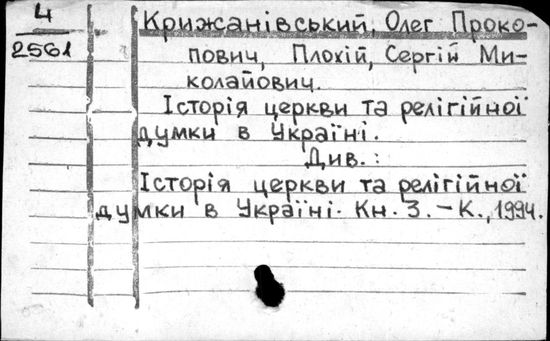 4
2561
Крижанівський, Олег Проко-
пович, Плохій, Сергій Ми-
колайович.
Історія церкви та релігійної
думки в Україні.
Див.:
Історія церкви та релігійної
думки в Україні. Кн. 3. – К., 1994.